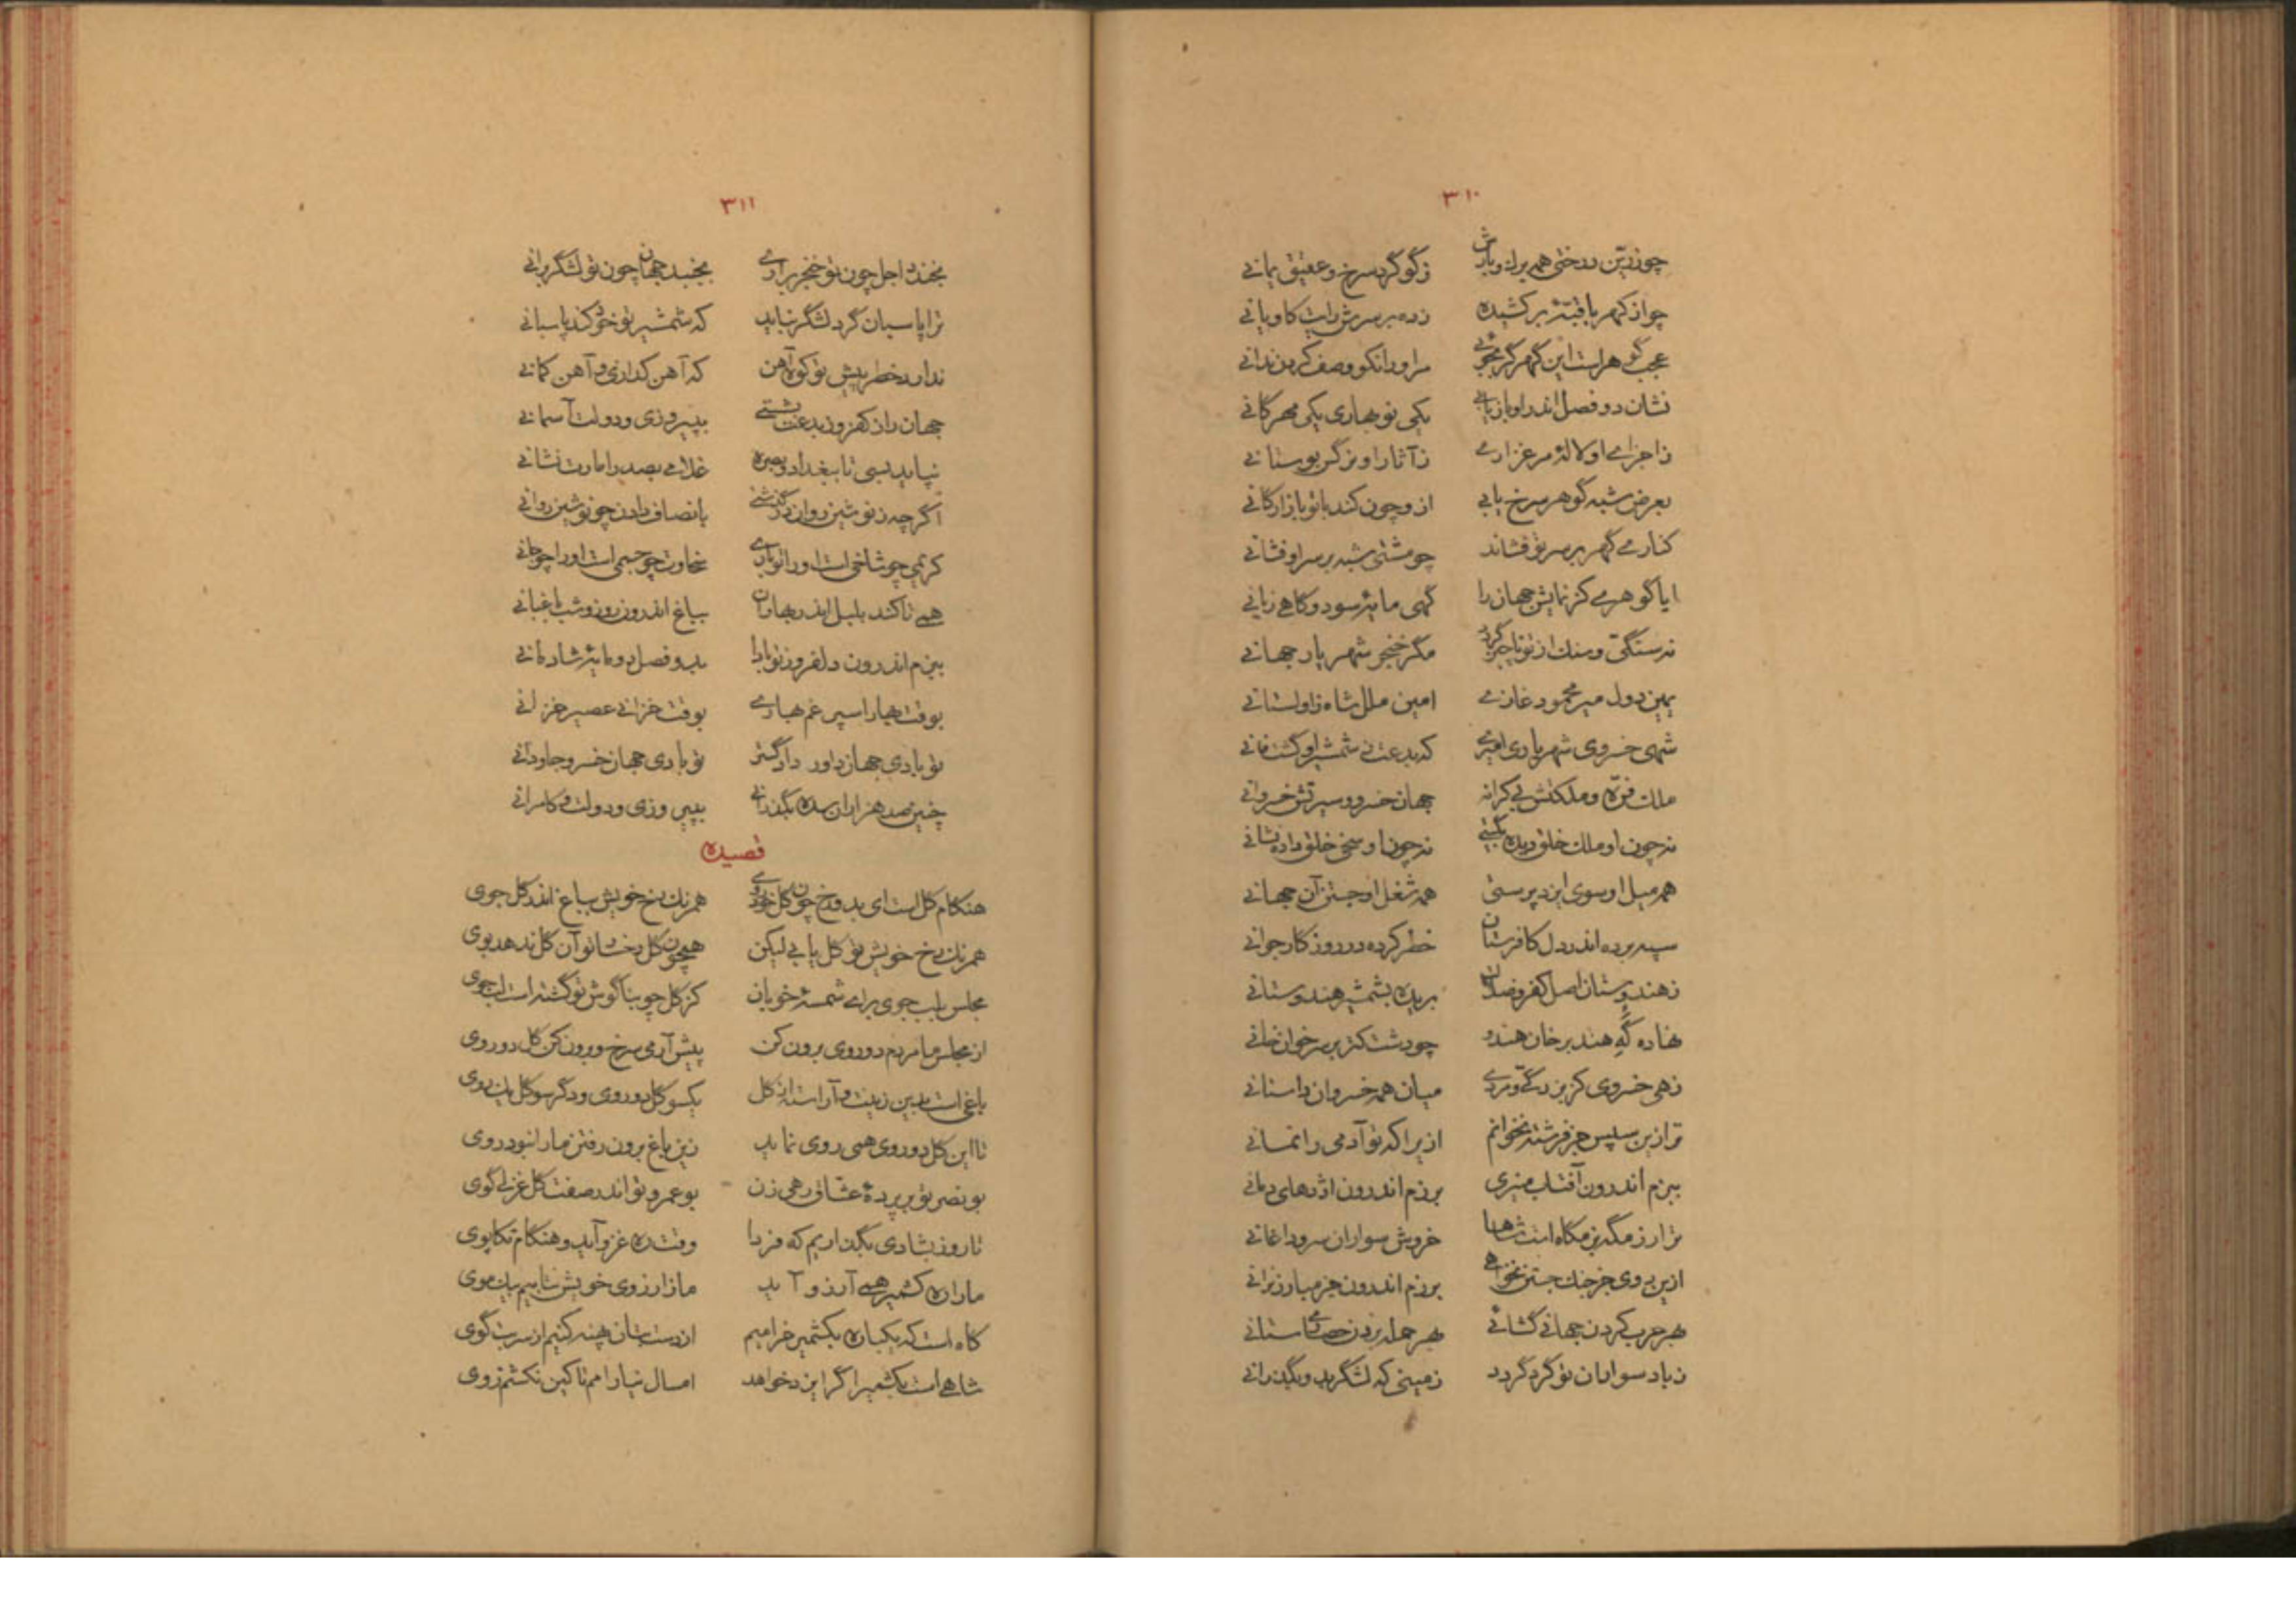 ۳۱۰
چو زرین درختی همه برک و بارش زگوگرد سرخ و عقیق یمانی
چو از کهربا قبهٔ برکشیده زده بر سرش رایت کاویانی
عجب گوهر است این گهر گر بجوئی مراورا نکو وصف کردن ندانی
نشان دو فصل اندر او باز یابی یکی نوبهاری یکی مهرکانی
ز اجزای او لالهٔ مرغزاری ز آثار او نرگس بوستانی
بعرض شبه گوهر سرخ یابی ازو چون کند با تو بازارکانی
کناری گهر بر سر تو فشاند چو مشتی شبه بر سر او فشانی
ایا گوهری کز نمایش جهان را گهی مایهٔ سود و کاهی زیانی
نه سنگی و سنك از تو ناچیز گردد مگر خنجر شهریار جهانی
یمین دول میر محمود غازی امین ملل شاه زاولستانی
شهی خسروی شهریاری امیری که بدعت ز شمشیر او گشت فانی
ملك فره و ملکتش بی کرانه جهان خسرو و سیرتش خسروانی
نه چون او ملك خلق دیده بگیتی نه چون او سخی خلق داده نشانی
همه میل او سوی ایزد پرستی همه شغل او جستن آن جهانی
سپه برده اندر دل کافرستان خطر کرده در روزکار جوانی
ز هندوستان اصل کفر و ضلالت بریده بشمشیر هندوستانی
نهاده گهِ هند بر خان هندو چو دشت کتر بر سر خوان خانی
زهی خسروی کز بزرگی و مردی میان همه خسروان داستانی
ترا زین سپس جز فرشته نخوانم ازیرا که تو آدمی را نمانی
ببزم اندرون آفتاب منیری برزم اندرون اژدهای دمانی
ترا رزمگه بزمگاه است شاها خروش سواران سرود اغانی
ازین روی جز جنك جستن نخواهی برزم اندرون جز مبارز نرانی
بهر حرب کردن جهانی گشائی بهر حمله بردن حصاری ستانی
ز باد سواران تو گرد گردد زمینی که لشگر بدو بگذرانی
۳۱۱
بخندد اجل چون تو خنجر برآری بجنبد جهان چون تو لشگر برانی
ترا پاسبان گرد لشگر نباید که شمشیر تو خود کند پاسبانی
ندارد خطر پیش تو کوه آهن که آهن کذاری و آهن کمانی
جهان را ز کفر و ز بدعت بشستی بپیروزی و دولت آسمانی
نپاید بسی تا ببغداد و بصره غلامی بصدر امارت نشانی
اگر چه ز نوشین روان درگذشتی بانصاف دادن چو نوشین روانی
کریمی چو شاخی است او را تو باری سخاوت چو جسمی است او را چو جانی
همی تا کند بلبل اندر بهاران بباغ اندرون روز و شب باغبانی
ببزم اندرون دلفروز تو بادا بدو فصل دو مایهٔ شادمانی
بوقت بهار اسپرغم بهاری بوقت خزانی عصیر خزانی
تو بادی جهان داور دادگستر تو بادی جهان خسرو جاودانی
چنین صد هزاران سده بگذرانی بپیروزی و دولت و کامرانی
قصیده
هنکام کل است ای بدو رخ چون کل خودروی همرنك رخ خویش بباغ اندر کل جوی
همرنك رخ خویش تو کل یابی لیکن همچون کل رخسار تو آن کل ندهد بوی
مجلس بلب جوی برای شمسهٔ خوبان کز کل چو بناکوش تو کشته است لب جوی
از مجلس ما مردم دو روی برون کن پیش آر می سرخ و برون کن کل دو روی
باغی است بدین زینت و آراسته از کل یکسو کل دو روی و دگر سو کل یك روی
تا این کل دو روی همی روی نماید زین باغ برون رفتن ما را نبود روی
بونصر تو بر پردهٔ عشاق رهی زن بوعمرو تو اندر صفت کل غزلی گوی
تا روز بشادی بگذاریم که فردا وقت ره غزو آید و هنکام تکاپوی
ما را ره کشمیر همی آرزو آید ما ز آرزوی خویش نتابیم بیك موی
کاه است که یکباره بکشمیر خرامیم از دست بتان پهنه کنیم از سر بت گوی
شاهی است بکشمیر اگر ایزد خواهد امسال نیارامم تا کین نکشم زوی